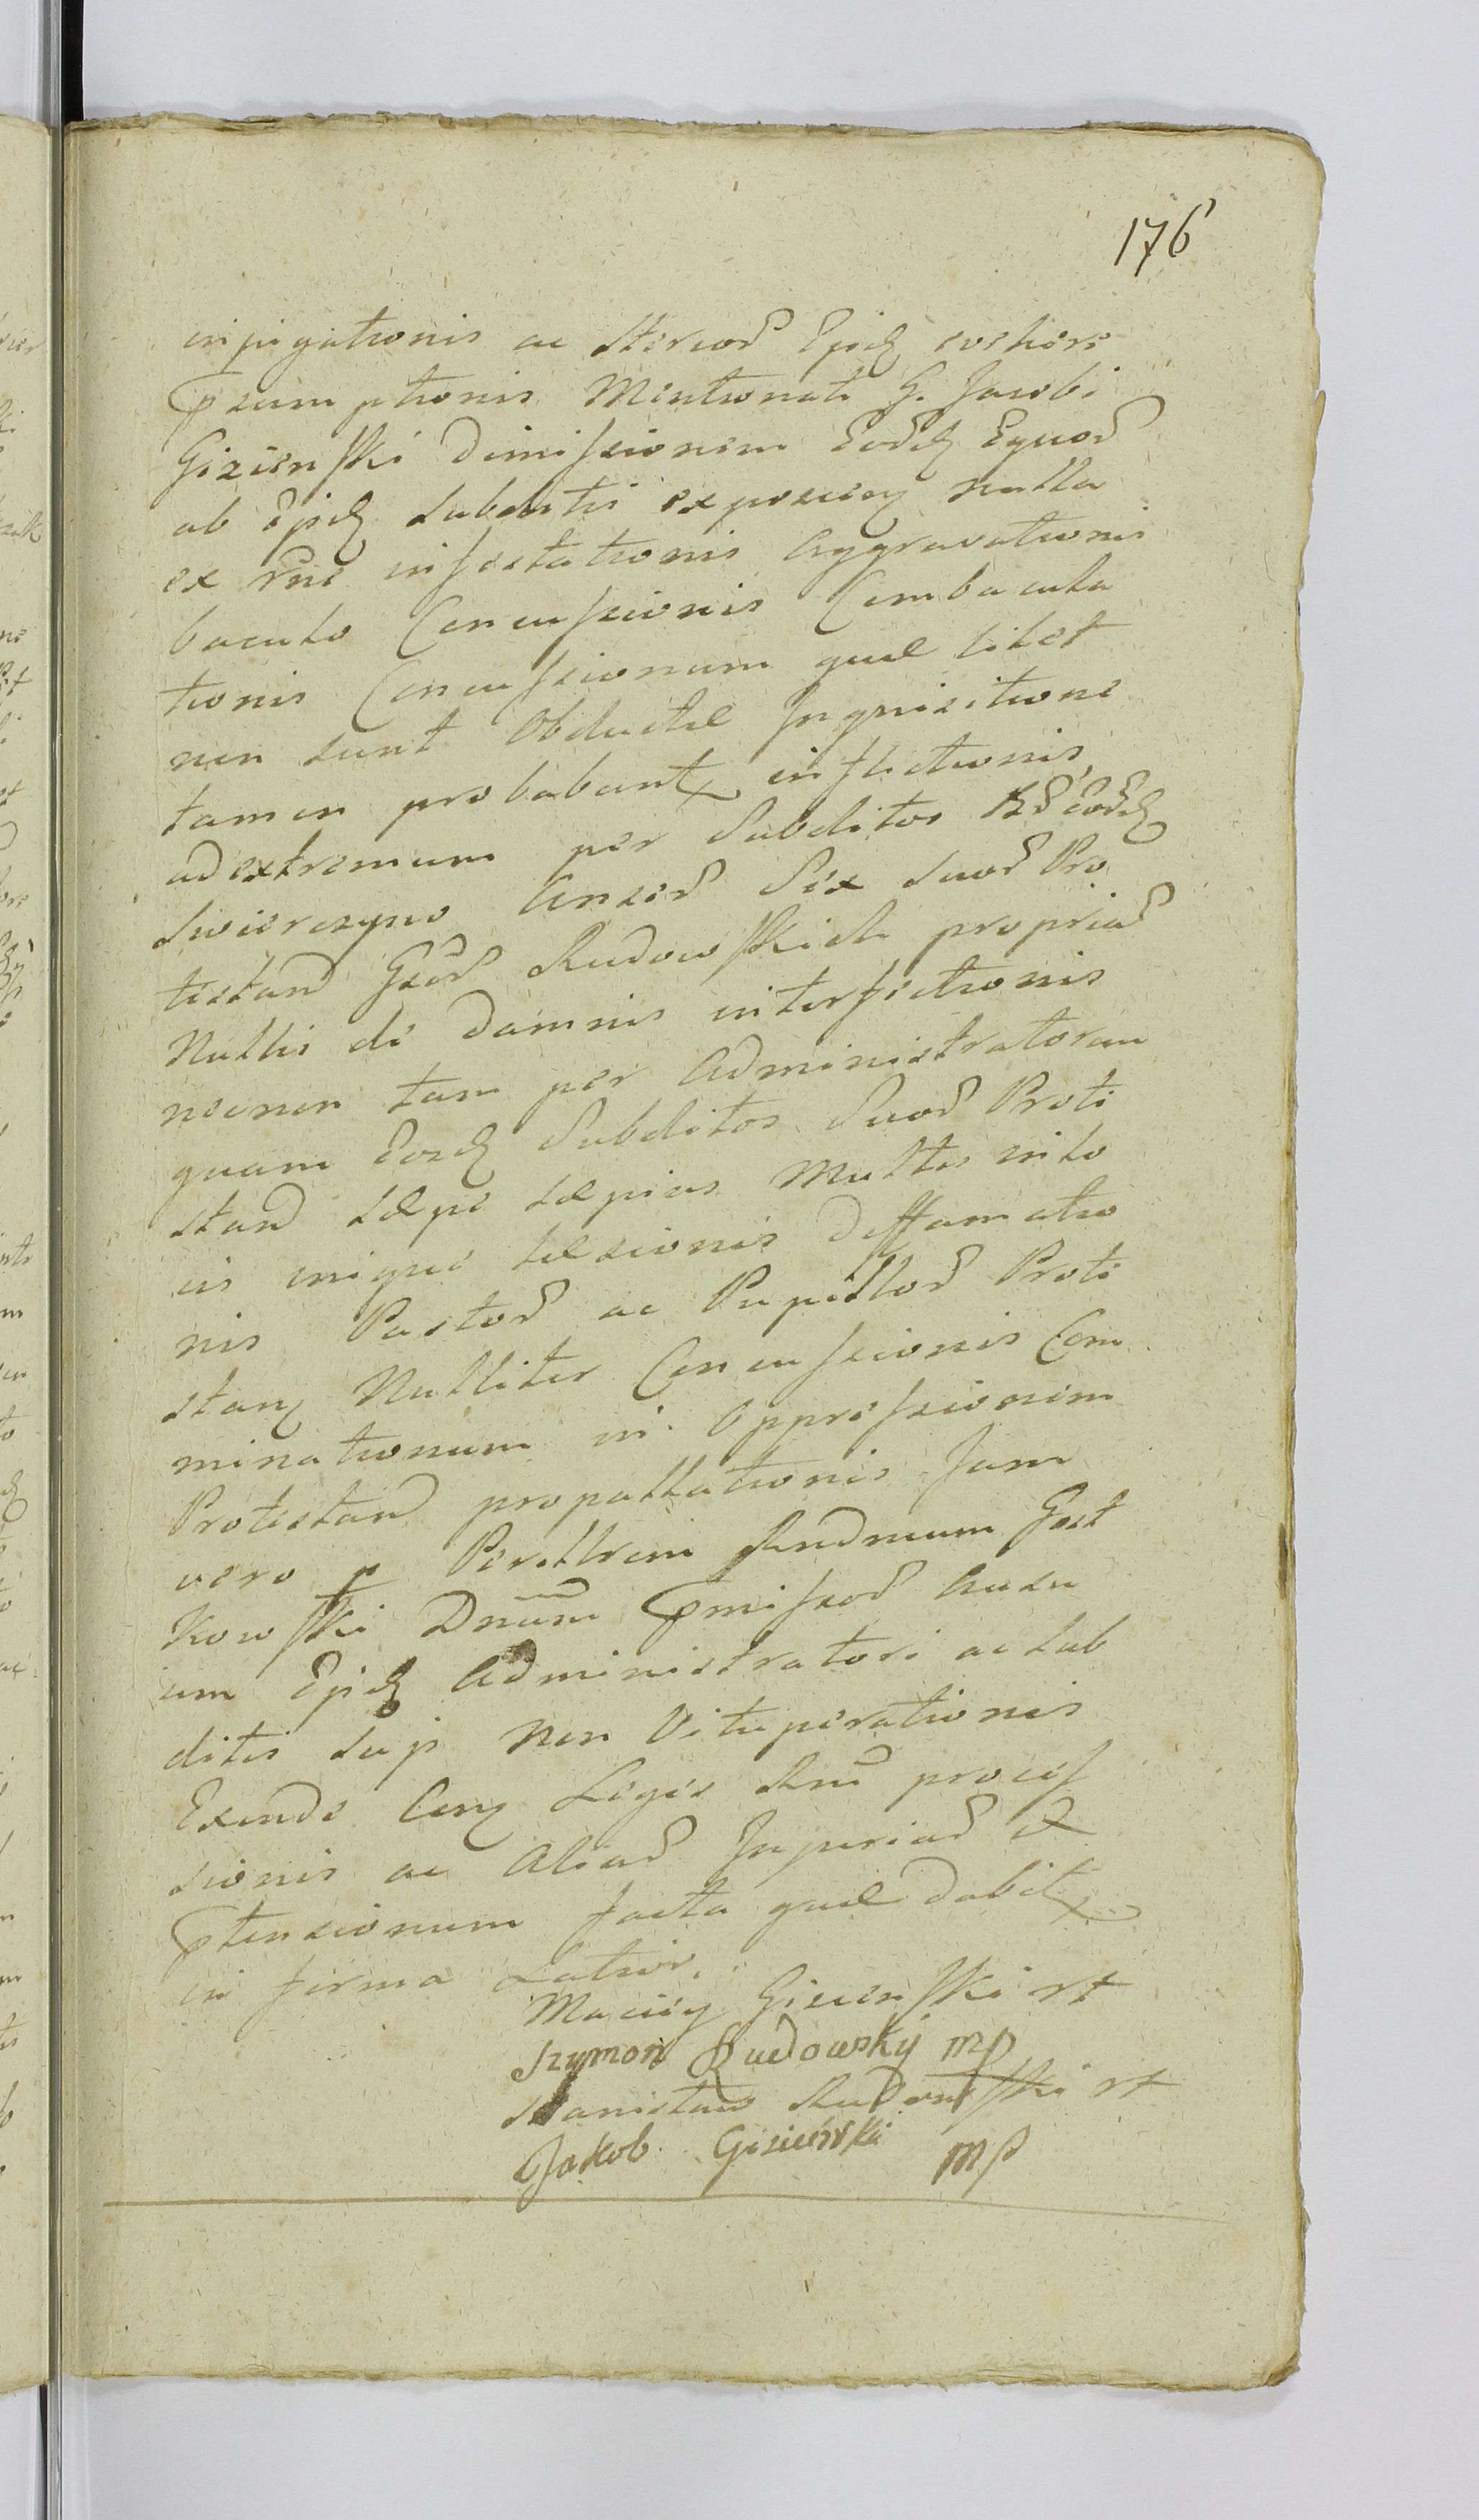 176
impignationis ac Stercor Epid evehere
Psumptionis Mentionati G. Jacobi
Gizienski Dimissionem Eord Equor
ab Epid Subditis exposceny nulla
ex rne infestationis Aggravationis
baculo Concussionis Combacula
tionis Concussionum quæ licet
non sunt Obductæ Inquisitione
tamen probabunt inflictionis
ad extremum per Subditos eord
Swierczyno Anser Sex Suor Pro
testan Gser Rudowskich propriar
Nullis de Damnis interfectionis
necnon tam per Administratorem
quam Eosd Subditos Suor Prote
stan sæpe sæpius Multis in lo
cis iniqué læsionis Deffamatio
nis Pastor ac Pupillor Prote
stan Nulliter Concussionis Com
minationum in Oppressionem
Protestan propallationis Jam
vero p Perillrem Rndmum Gost
kowski Dnum Pmissor Ausu
um Epid Administratori ac sub
ditis suis Non Vituperationis
Exinde Cen Legis Rni proces
sionis ac Aliar Injuriar et
Ptensionum facta quæ dabit
in forma Latior.
Maciey Gizienski rt
Szymon Rudowsky mp
Stanisław Rudowski rt
Jakob Giziński mp